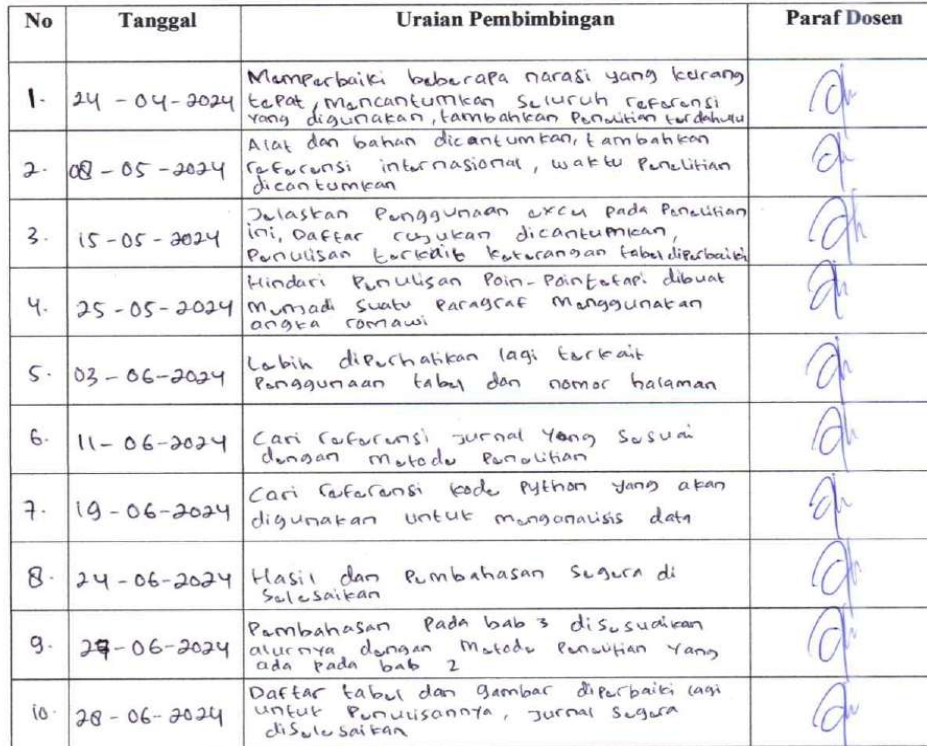 No Tanggal Uraian Pembimbingan Paraf Dosen
Memperbaiki beberapa narasi yang kurang
1. 24 - 04 - 2024 tepat, mencantumkan seluruh referensi
yang digunakan, tambahkan Penelitian terdahulu
Alat dan bahan dicantumkan, tambahkan
2. 08 - 05 - 2024 referensi internasional, waktu Penelitian
dicantumkan
Jelaskan Penggunaan excel pada Penelitian
3. 15 - 05 - 2024 ini, Daftar rujukan dicantumkan,
Penulisan terkait keterangan tabel diperbaiki
Hindari Penulisan Poin-Poin tetapi dibuat
4. 25 - 05 - 2024 menjadi suatu Paragraf menggunakan
angka romawi
5. 03 - 06 - 2024 Lebih diperhatikan lagi terkait
Penggunaan tabel dan nomor halaman
6. 11 - 06 - 2024 Cari referensi jurnal yang sesuai
dengan metode Penelitian
7. 19 - 06 - 2024 Cari referensi kode Python yang akan
digunakan untuk menganalisis data
8. 24 - 06 - 2024 Hasil dan Pembahasan segera di
selesaikan
Pembahasan Pada bab 3 disesuaikan
9. 27 - 06 - 2024 alurnya dengan Metode Penelitian yang
ada pada bab 2
Daftar tabel dan gambar diperbaiki lagi
10. 28 - 06 - 2024 untuk Penulisannya, jurnal segera
diselesaikan